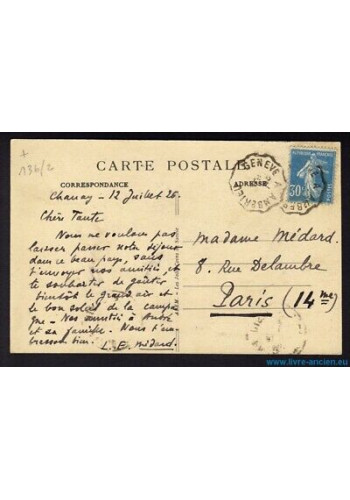 +
136/2
CARTE POSTALE
CORRESPONDANCE
ADRESSE
GENEVE A AMBERIEU
30c
Chanay - 12 Juillet 26.
Chère Tante
Nous ne voulons pas
laisser passer notre séjour
dans ce beau pays, sans
t'envoyer nos amitiés, et
te souhaiter de goûter
bientôt le grand air et
le bon soleil de la campa
gne - Nos amitiés à André
et sa famille. Nous t'em
brassons bien. L. P. Médard.
Madame Médard.
8. Rue Delambre
Paris (14me)
www.livre-ancien.eu